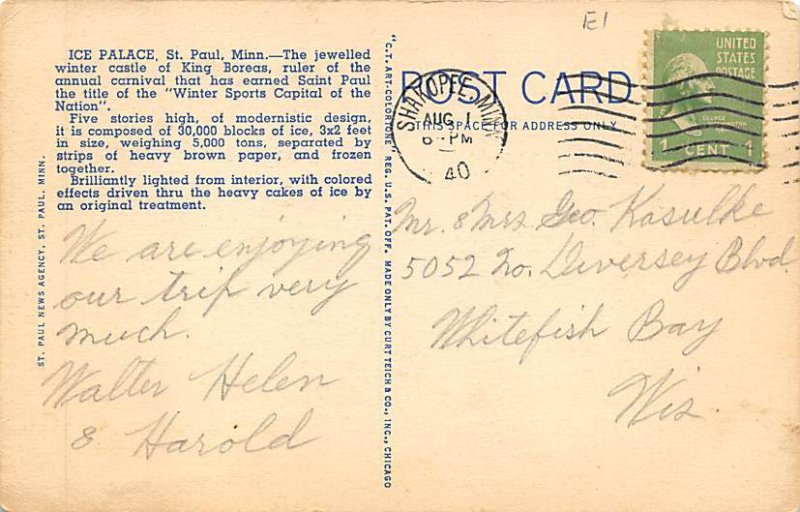 E1
ICE PALACE, St. Paul, Minn.—The jewelled
winter castle of King Boreas, ruler of the
annual carnival that has earned Saint Paul
the title of the "Winter Sports Capital of the
Nation".
Five stories high, of modernistic design,
it is composed of 30,000 blocks of ice, 3x2 feet
in size, weighing 5,000 tons, separated by
strips of heavy brown paper, and frozen
together.
Brilliantly lighted from interior, with colored
effects driven thru the heavy cakes of ice by
an original treatment.
ST. PAUL NEWS AGENCY, ST. PAUL, MINN.
We are enjoying
our trip very
much.
Walter Helen
& Harold
"C.T. ART-COLORTONE" REG. U.S. PAT. OFF. MADE ONLY BY CURT TEICH & CO., INC., CHICAGO
POST CARD
THIS SPACE FOR ADDRESS ONLY
SHAKOPEE, MINN.
AUG 1
PM
40
UNITED
STATES
POSTAGE
GEORGE
WASHINGTON
1 CENT 1
Mr. & Mrs. Geo. Kasulke
5052 No. Diversey Blvd
Whitefish Bay
Wis.